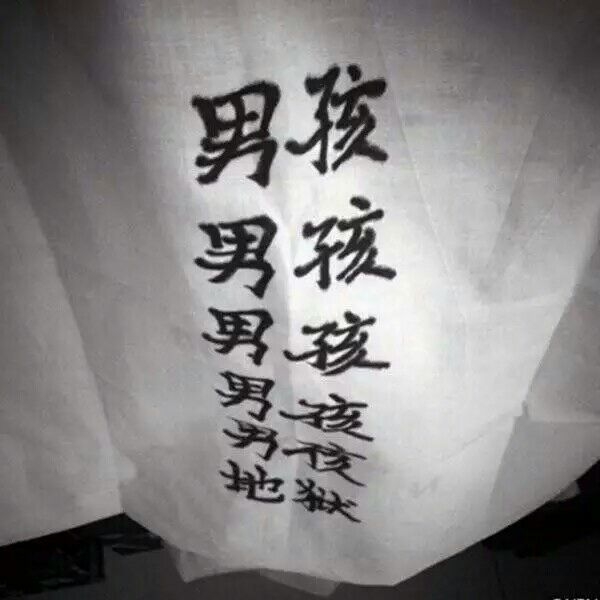 男孩
男孩
男孩
男孩
男孩
地狱